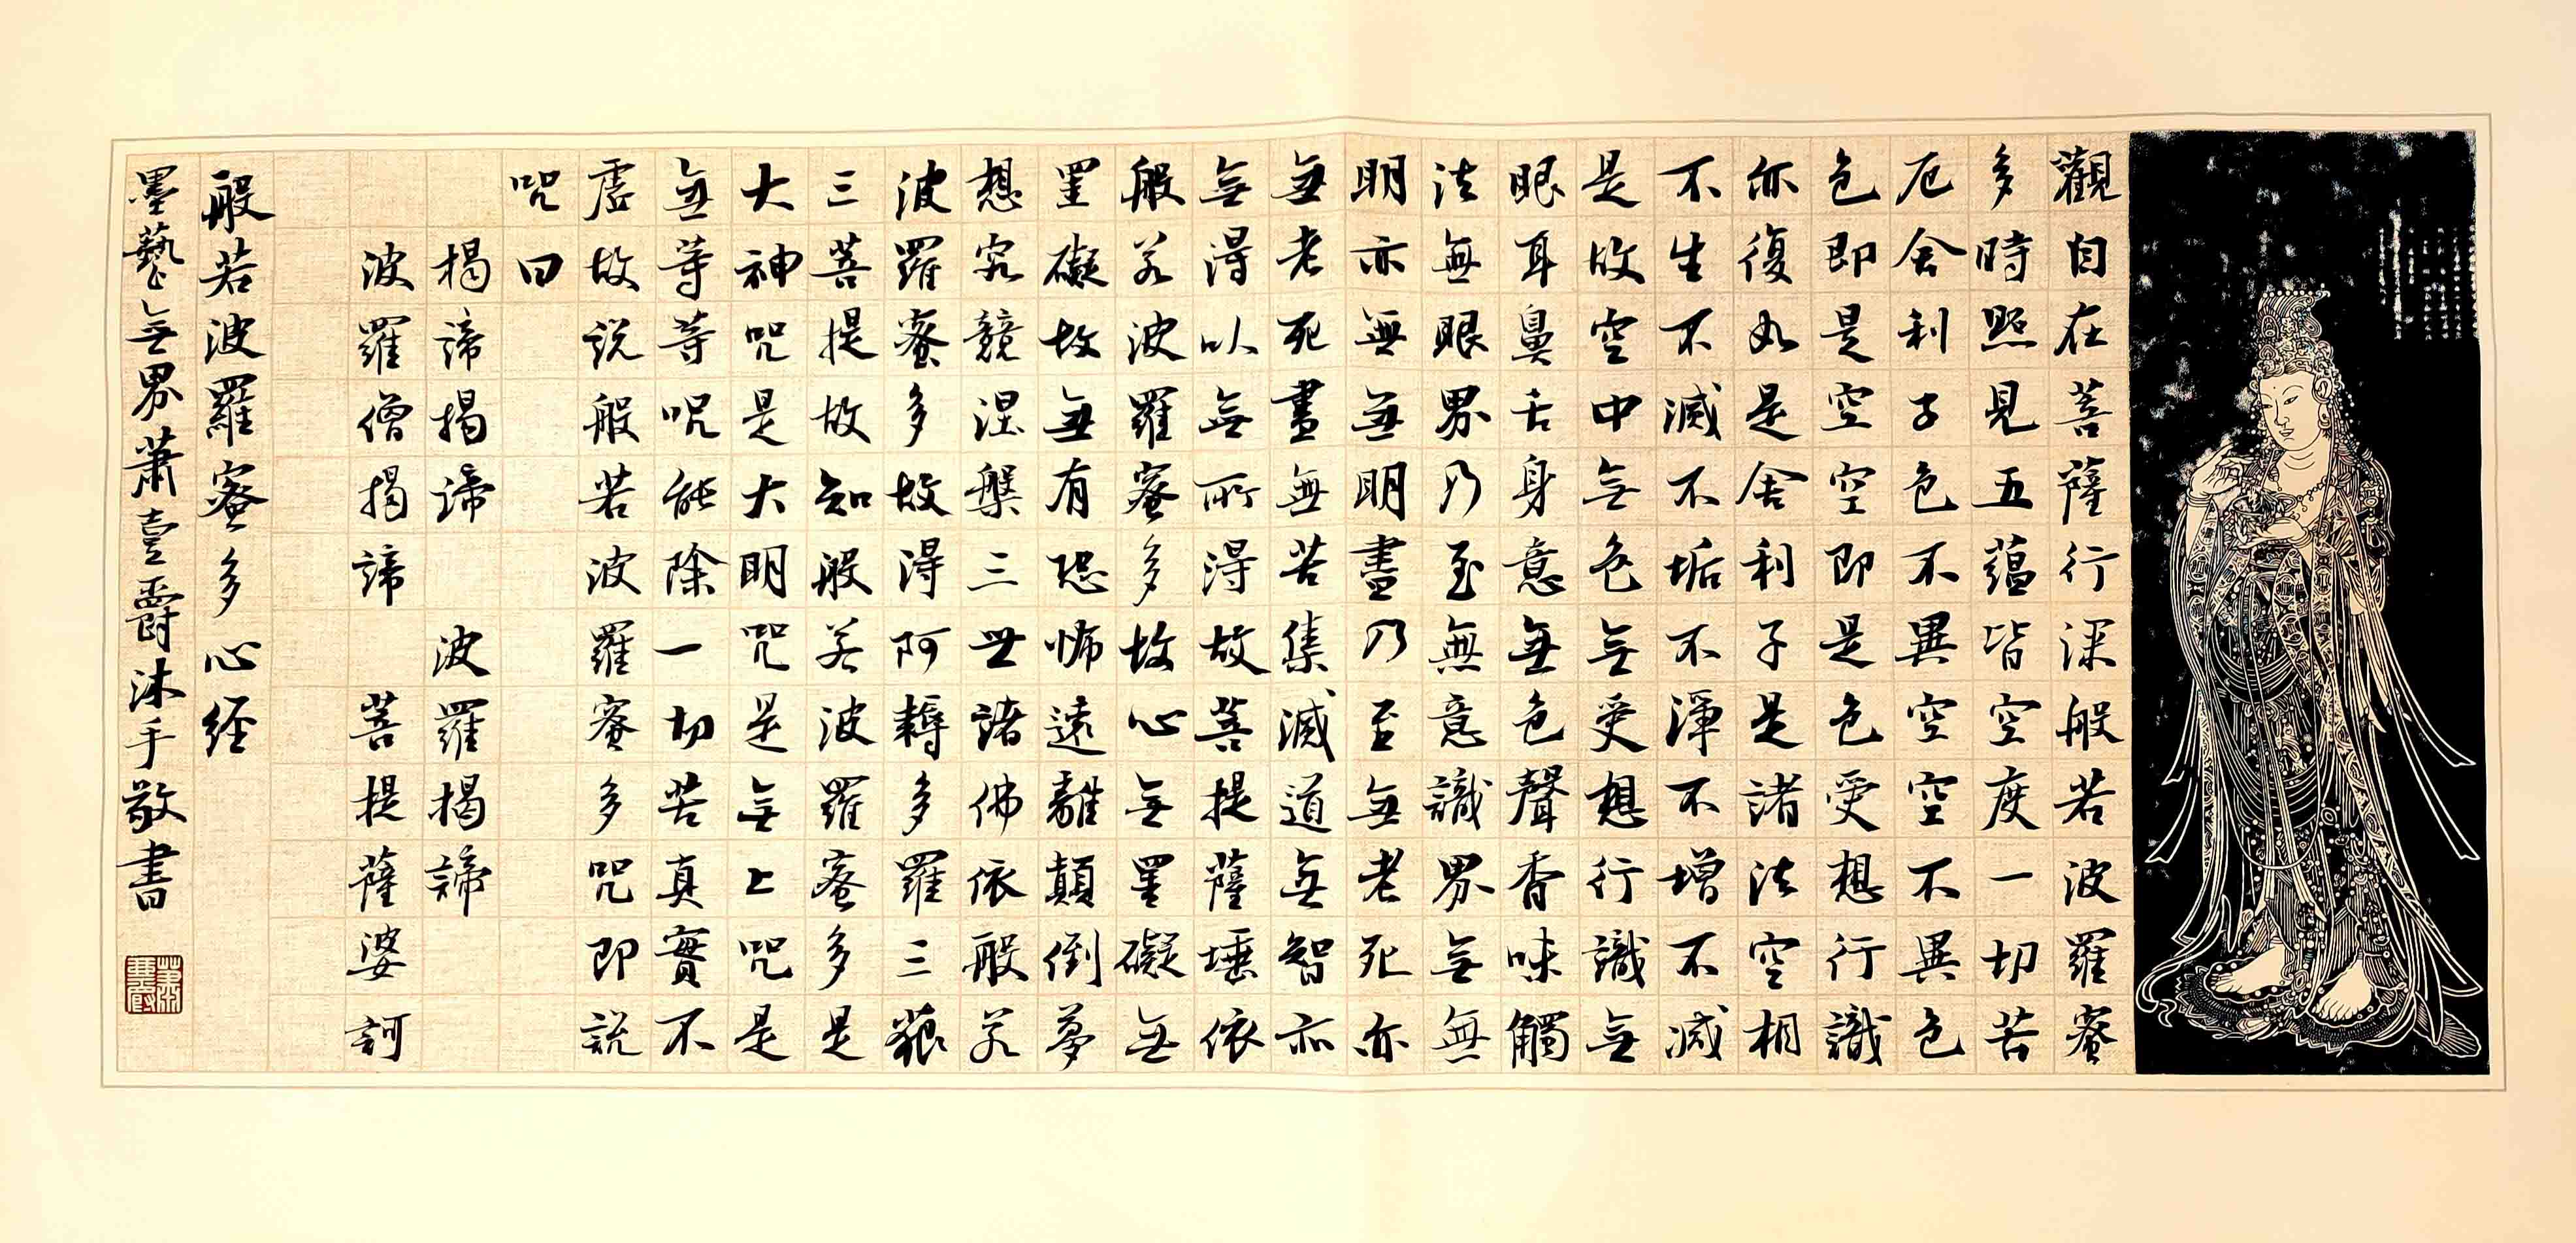 觀自在菩薩行深般若波羅蜜
多時照見五蘊皆空度一切苦
厄舍利子色不異空空不異色
色即是空空即是色受想行識
亦復如是舍利子是諸法空相
不生不滅不垢不淨不增不減
是故空中無色無受想行識無
眼耳鼻舌身意無色聲香味觸
法無眼界乃至無意識界無無
明亦無無明盡乃至無老死亦
無老死盡無苦集滅道無智亦
無得以無所得故菩提薩埵依
般若波羅蜜多故心無罣礙無
罣礙故無有恐怖遠離顛倒夢
想究競涅槃三世諸佛依般若
波羅蜜多故得阿耨多羅三藐
三菩提故知般若波羅蜜多是
大神咒是大明咒是無上咒是
無等等咒能除一切苦真實不
虛故說般若波羅蜜多咒即說
咒曰
揭諦揭諦 波羅揭諦
波羅僧揭諦 菩提薩婆訶
般若波羅蜜多心经
墨藝無界蕭壹爵沐手敬書